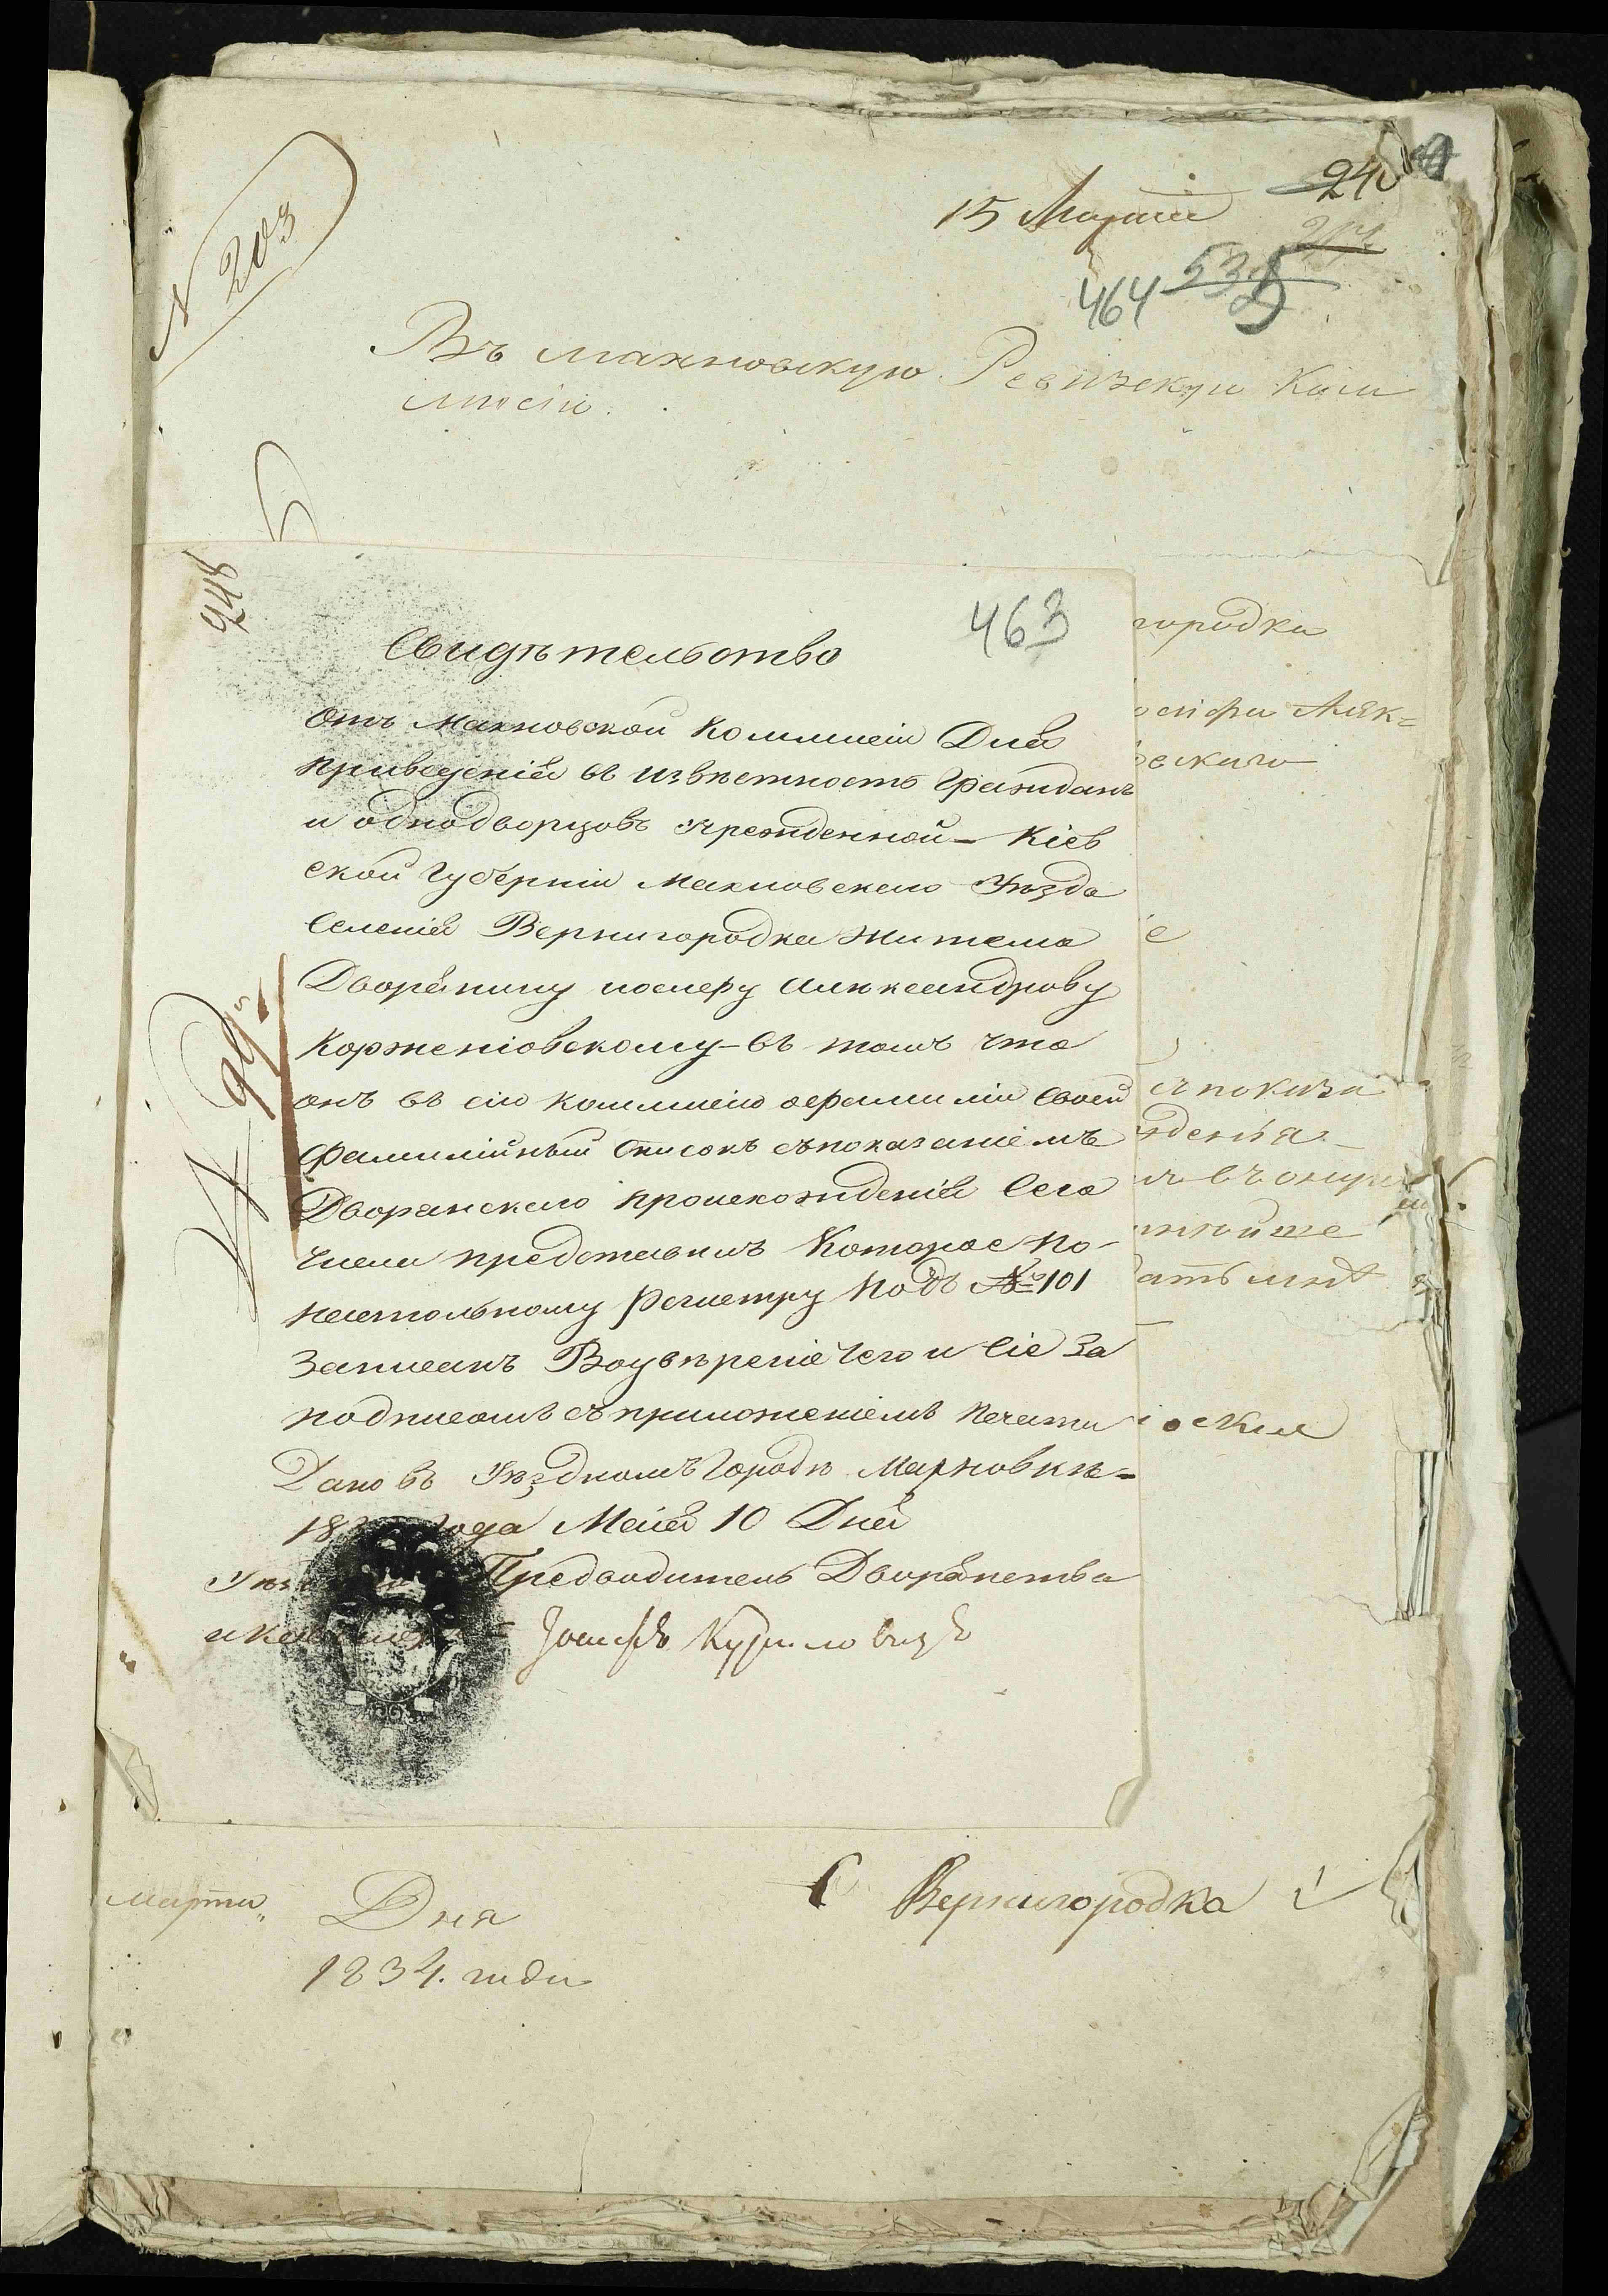 № 203
15 Марта
240
464 535
Въ махновскую Ревизскую Ком
мисію.
448
463
Свидѣтельство
Отъ Махновской Коммисіи Для
приведенія въ извѣстность Граждан
и однодворцовъ Учрежденной Кіев
ской Губерніи Махновскаго Уѣзда
Селенія Вернигородка жителю
Дворянину иосифу Александрову
Корженіовскому въ томъ что
онъ въ сію Коммисію о фамиліи своей
фамилійный Списокъ съ показаніемъ
Дворянскаго происхожденія Сего
числа представилъ Которое по
настольному регистру подъ № 101
записанъ Воувѣреніе чего и Сіе за
подписомъ съ приложеніемъ печати
Дано въ Уѣздномъ Городѣ Махновкѣ
18 года Маія 10 Дня
Предводитель Дворянства
Іосифъ
№ 99
городки
осифа Алек=
вскаго
е
съ показа
жденія
ской
марта Дня
1834. года
С Вернигородка